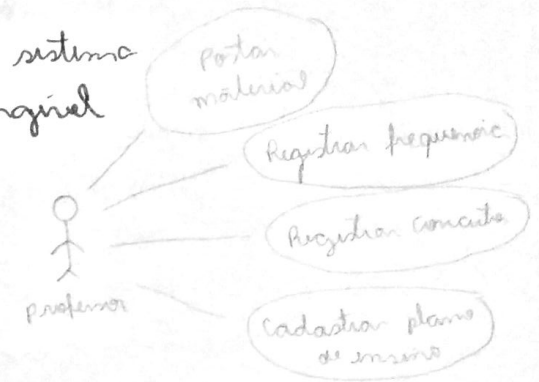 sistema
Postar
material
Registrar frequencia
Registrar conceito
professor
Cadastrar plano
de ensino